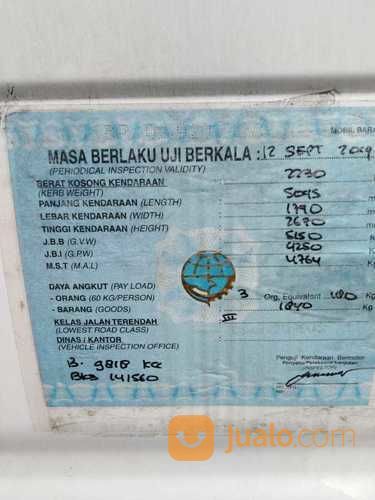 MOBIL BARA
MASA BERLAKU UJI BERKALA : 12 SEPT 2019
(PERIODICAL INSPECTION VALIDITY)
BERAT KOSONG KENDARAAN 2230
(KERB WEIGHT)
PANJANG KENDARAAN (LENGTH) 5095 m
LEBAR KENDARAAN (WIDTH) 1790 m
TINGGI KENDARAAN (HEIGHT) 2670 m
J.B.B (G.V.W) 5150
J.B.I (G.P.W) 4250
M.S.T (M.A.L) 4764 Kg
DAYA ANGKUT (PAY LOAD)
- ORANG (60 KG/PERSON) 3 Org, Equivalent 180 Kg
- BARANG (GOODS) 1840 Kg
KELAS JALAN TERENDAH III
(LOWEST ROAD CLASS)
DINAS / KANTOR
(VEHICLE INSPECTION OFFICE)
Penguji Kendaraan Bermotor
B. 9818 KCC
BKS 141560
jualo.com